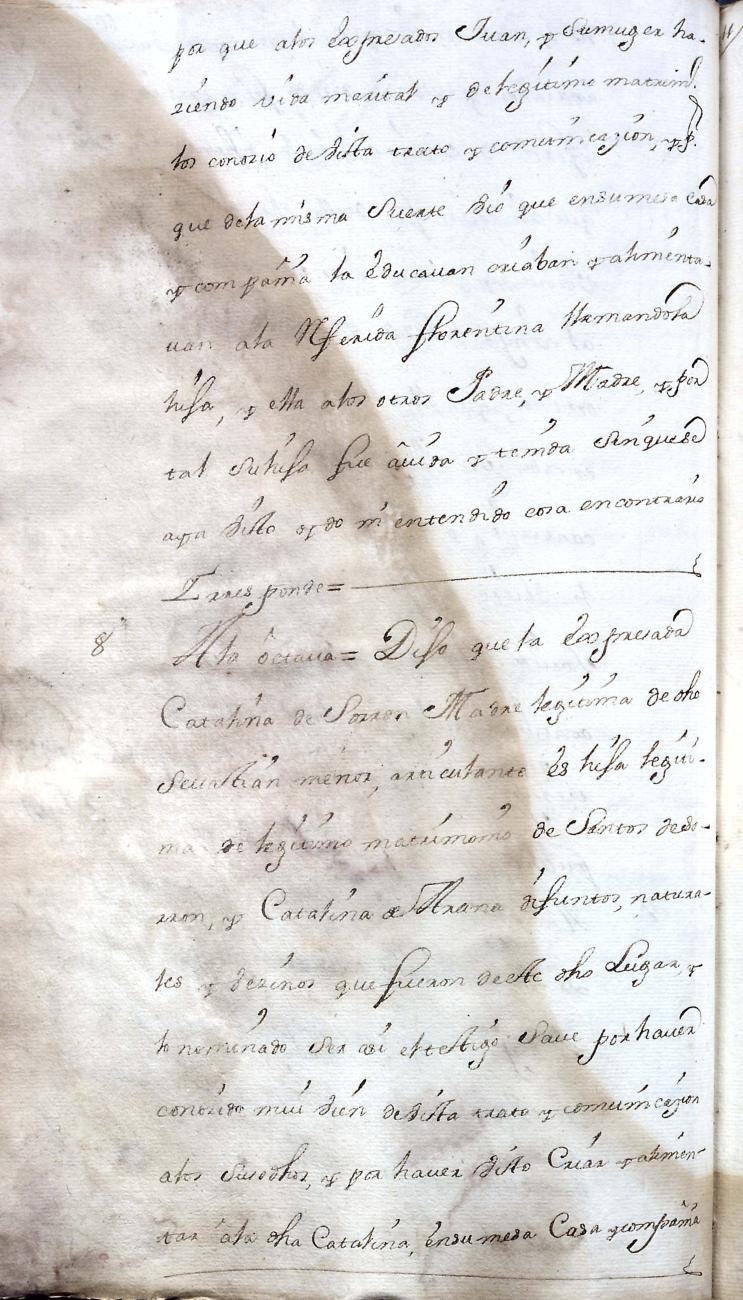 por que alos expresados Juan, y Sumuger ha-
ziendo vida marital y de legitimo matrim.
los conozio de vista trato y comunicazion, y p.
que dela misma Suerte vió que ensumesa casa
y compañia la educauan criaban y alimenta-
uan ala Referida florentina llamandola
hija, y ella alos otros Padre, y Madre, y por
tal Suhija fue auida y tenida Sinquese
aya visto oydo ni entendido cosa encontrario
I rresponde=
8 A la octaua= Dijo que la expresada
Catalina de Sorron Madre legitima de dho
Seuastian menor, articulante es hija legiti-
ma de legitimo matrimonio de Santos deso-
rron, y Catalina de Arana difuntos, natura-
les y vezinos que fueron deste dho Lugar, y
lo nominado Ser asi eltestigo Saue por hauer
conozido mui bien devista trato y comunicazion
alos Susodhos, y por hauer visto Criar y alimen-
tar ala dha Catalina, ensumesa Casa y compañia